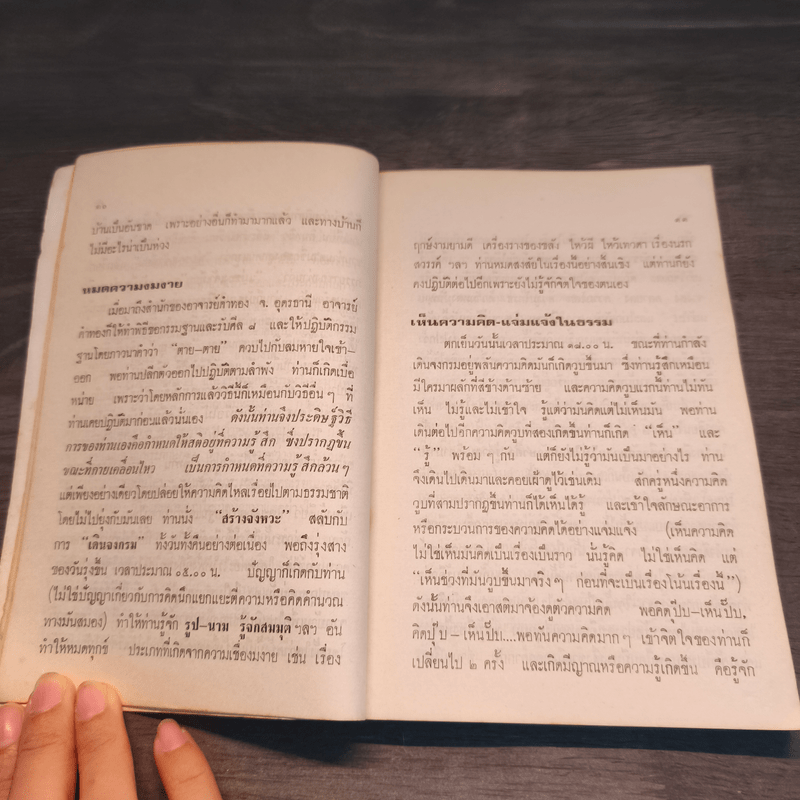 ๑๐
บ้านเป็นอันขาด เพราะอย่างอื่นก็ทำมามากแล้ว และทางบ้านก็
ไม่มีอะไรน่าเป็นห่วง
หมดความงมงาย
เมื่อมาถึงสำนักของอาจารย์คำทอง จ. อุดรธานี อาจารย์
คำทองก็ให้ทำพิธีขอกรรมฐานและรับศีล ๘ และให้ปฏิบัติกรรม
ฐานโดยภาวนาคำว่า “ตาย-ตาย” ควบไปกับลมหายใจเข้า-
ออก พอท่านปลีกตัวออกไปปฏิบัติตามลำพัง ท่านก็เกิดเบื่อ
หน่าย เพราะว่าโดยหลักการแล้ววิธีนี้ก็เหมือนกับวิธีอื่นๆ ที่
ท่านเคยปฏิบัติมาก่อนแล้วนั่นเอง ดังนั้นท่านจึงประดิษฐ์วิธี
การของท่านเองคือกำหนดให้สติอยู่ที่ความรู้สึก ซึ่งปรากฏขึ้น
ขณะที่กายเคลื่อนไหว เป็นการกำหนดที่ความรู้สึกล้วนๆ
แต่เพียงอย่างเดียวโดยปล่อยให้ความคิดไหลเรื่อยไปตามธรรมชาติ
โดยไม่ไปยุ่งกับมันเลย ท่านนั่ง “สร้างจังหวะ” สลับกับ
การ “เดินจงกรม” ทั้งวันทั้งคืนอย่างต่อเนื่อง พอถึงรุ่งสาง
ของวันรุ่งขึ้น เวลาประมาณ ๐๕.๐๐ น. ปัญญาก็เกิดกับท่าน
(ไม่ใช่ปัญญาเกี่ยวกับการคิดนึกแยกแยะตีความหรือคิดคำนวณ
ทางมันสมอง) ทำให้ท่านรู้จัก รูป-นาม รู้จักสมมุติ ฯลฯ อัน
ทำให้หมดทุกข์ ประเภทที่เกิดจากความเชื่องมงาย เช่น เรื่อง
๑๑
ฤกษ์งามยามดี เครื่องรางของขลัง ไหว้ผี ไหว้เทวดา เรื่องนรก
สวรรค์ ฯลฯ ท่านหมดสงสัยในเรื่องนี้อย่างสิ้นเชิง แต่ท่านก็ยัง
คงปฏิบัติต่อไปอีกเพราะยังไม่รู้จักจิตใจของตนเอง
เห็นความคิด-แจ่มแจ้งในธรรม
ตกเย็นวันนั้นเวลาประมาณ ๑๘.๐๐ น. ขณะที่ท่านกำลัง
เดินจงกรมอยู่พลันความคิดมันก็เกิดวูบขึ้นมา ซึ่งท่านรู้สึกเหมือน
มีใครมาผลักที่สีข้างด้านซ้าย และความคิดวูบแรกนั้นท่านไม่ทัน
เห็น ไม่รู้และไม่เข้าใจ รู้แต่ว่ามันคิดแต่ไม่เห็นมัน พอท่าน
เดินต่อไปอีกความคิดวูบที่สองเกิดขึ้นท่านก็เกิด “เห็น” และ
“รู้” พร้อมๆ กัน แต่ก็ยังไม่รู้ว่ามันเป็นมาอย่างไร ท่าน
จึงเดินไปเดินมาและคอยเฝ้าดูไว้เช่นเดิม สักครู่หนึ่งความคิด
วูบที่สามปรากฏขึ้นท่านก็ได้เห็นได้รู้ และเข้าใจลักษณะอาการ
หรือกระบวนการของความคิดได้อย่างแจ่มแจ้ง (เห็นความคิด
ไม่ใช่เห็นมันคิดเป็นเรื่องเป็นราว นั้นรู้คิด ไม่ใช่เห็นคิด แต่
“เห็นช่วงที่มันวูบขึ้นมาจริงๆ ก่อนที่จะเป็นเรื่องโน้นเรื่องนี้”)
ดังนั้นท่านจึงเอาสติมาจ้องดูตัวความคิด พอคิดปุ๊บ-เห็นปั๊บ,
คิดปุ๊บ-เห็นปั๊บ....พอทันความคิดมากๆ เข้าจิตใจของท่านก็
เปลี่ยนไป ๒ ครั้ง และเกิดมีญาณหรือความรู้เกิดขึ้น คือรู้จัก